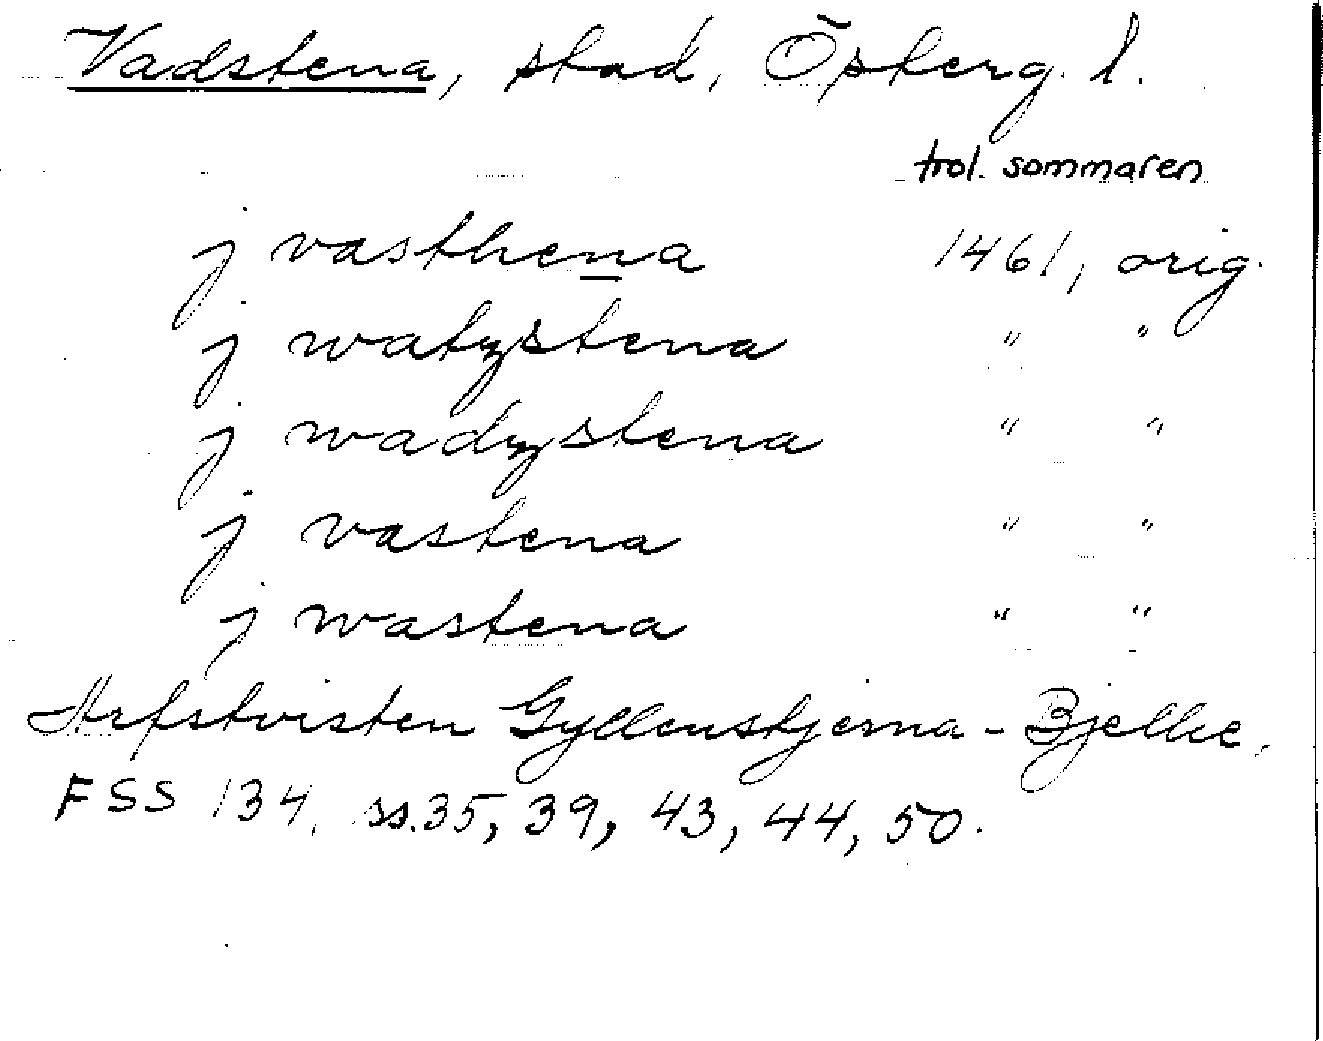 Vadstena, stad, Östergl.
trol. sommaren
j vasthena 1461, orig.
j watzstena " "
j wadzstena " "
j vastena " "
j wastena " "
Arfstvisten Gyllenstjerna-Bjelke,
FSS 134, ss.35, 39, 43, 44, 50.